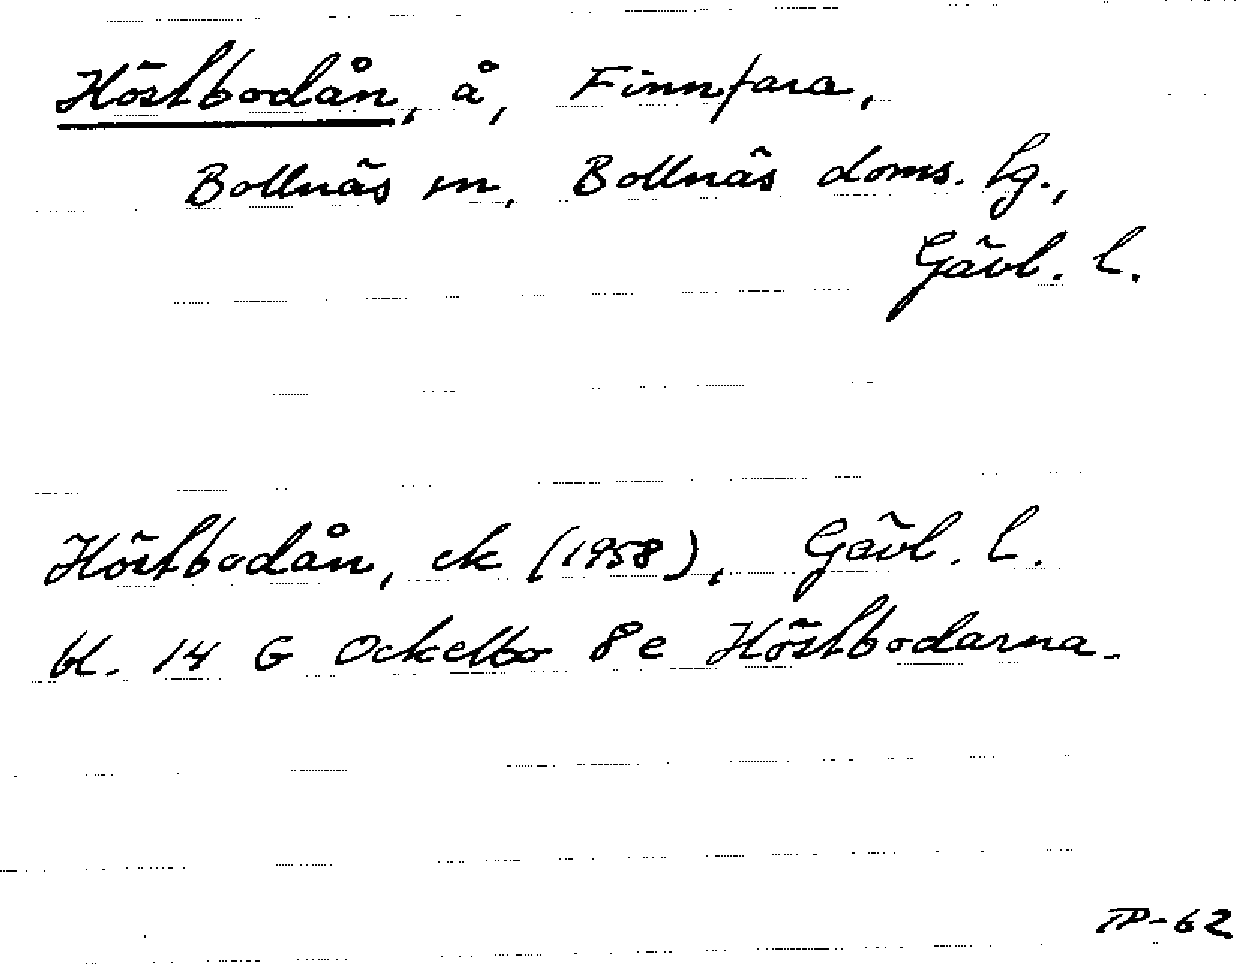 Höstbodån, å, Finnfara,
Bollnäs sn, Bollnäs doms. hg.,
Gävl. l.
Höstbodån, ek (1958), Gävl. l.
bl. 14 G Ockelbo 8e Höstbodarna.
TP-62